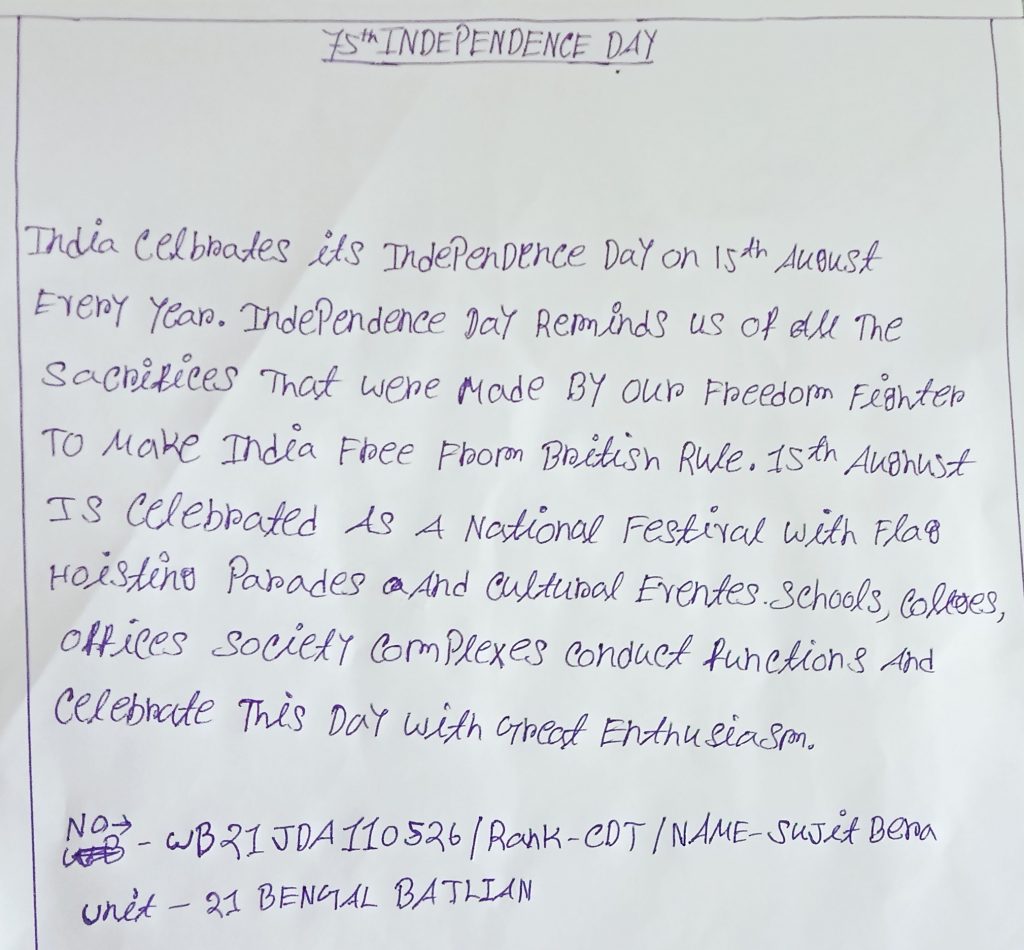 75th INDEPENDENCE DAY
India Celbrates its IndePenDence Day on 15th August
Every Year. IndePendence Day Reminds us of all The
Sacrifices That were Made BY our Freedom Fighter
TO Make India Free From British Rule. 15th Aughust
IS Celebrated As A National Festival with Flag
Hoisting Parades And Cultural Eventes. Schools, Colleges,
offices society ComPlexes conduct functions And
Celebrate This Day with Great Enthusiasm.
NO→ - WB21JDA110526/Rank-CDT/NAME-Sujit Bera
unit - 21 BENGAL BATLIAN